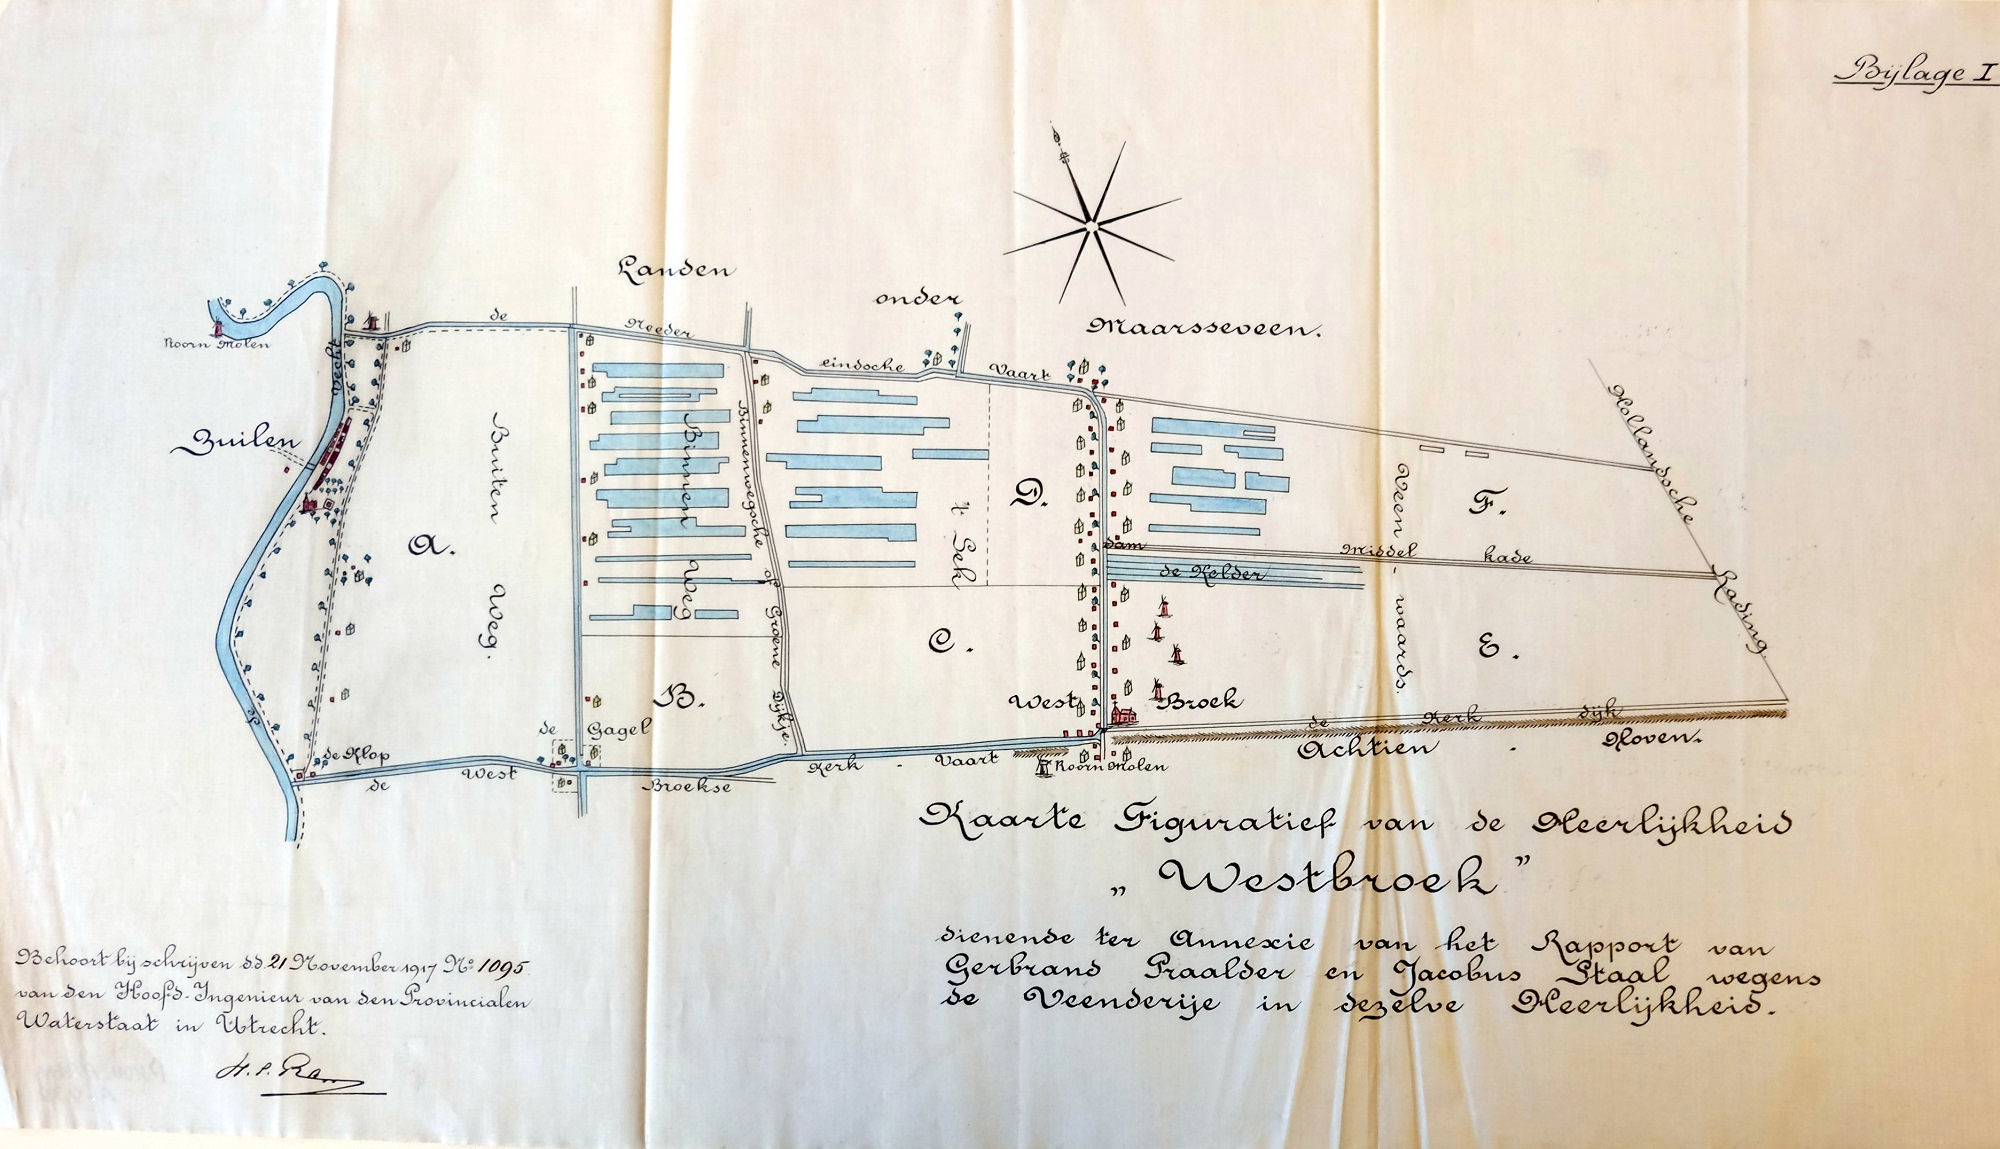 Bijlage I
Landen
onder
Maarsseveen.
de Needer
eindsche Vaart
Koorn Molen
de Vecht
Zuilen
Buiten Weg.
Binnen Weg
Binnenwegsche of Groene Dijkje.
't Gek
A.
B.
C.
D.
E.
F.
Hollandsche Rading.
Veen - waards.
dam
Middel kade
de Kelder
West Broek
de Kerk dijk
Achtien - Hoven.
de Gagel
de Klop
de West Broekse Kerk - Vaart
Koorn Molen
Kaarte Figuratief van de Heerlijkheid
„Westbroek”
dienende ter Annexie van het Rapport van
Gerbrand Praalder en Jacobus Staal wegens
de Veenderije in dezelve Heerlijkheid.
Behoort bij schrijven dd. 21 November 1917 No. 1095
van den Hoofd-Ingenieur van den Provincialen
Waterstaat in Utrecht.